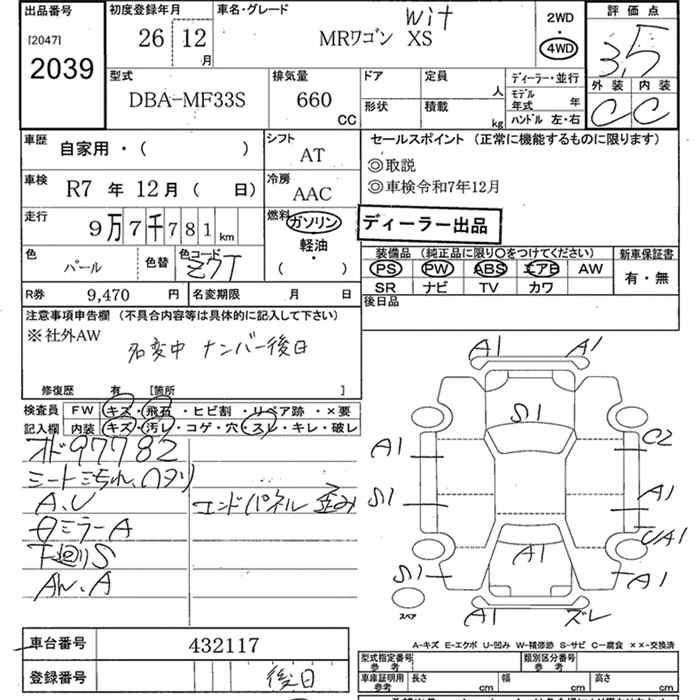 出品番号
[2047]
2039
初度登録年月
26 12 月
車名・グレード
wit
MRワゴン XS
2WD
・
4WD
評価点
3.5
外装 内装
C C
型式
DBA-MF33S
排気量
660 CC
ドア
形状
定員 人
積載 kg
ディーラー・並行
モデル年式 年
ハンドル 左・右
車歴
自家用 ・ ( )
シフト
AT
セールスポイント (正常に機能するものに限ります)
◎取説
◎車検令和7年12月
車検
R7 年 12月 ( 日)
冷房
AAC
走行
9万7千781 km
燃料
ガソリン
軽油・
( )
ディーラー出品
色
パール
色替
色コード
Z7T
装備品 (純正品に限り○をつけてください)
PS PW ABS エアB AW
SR ナビ TV カワ
新車保証書
有・無
R券 9,470 円
名変期限 月 日
後日品
注意事項申告欄 (不具合内容等は具体的に記入して下さい)
※社外AW
名変中 ナンバー後日
修復歴 有 [箇所 ]
検査員記入欄
FW キズ・飛石・ヒビ割・リペア跡・×要
内装 キズ・汚レ・コゲ・穴・スレ・キレ・破レ
97782
A.U
エンドパネル 歪み
ミラーA
下廻りS
AW.A
A1 A1
S1
A1 C2
S1 A1
UA1
A1
S1 A1
A1 ズレ
スペア
A-キズ E-エクボ U-凹み W-補修跡 S-サビ C-腐食 ××-交換済
車台番号 432117
登録番号 後日
型式指定番号 参考
類別区分番号 参考
車庫証明用 参考
長さ cm
幅 cm
高さ cm